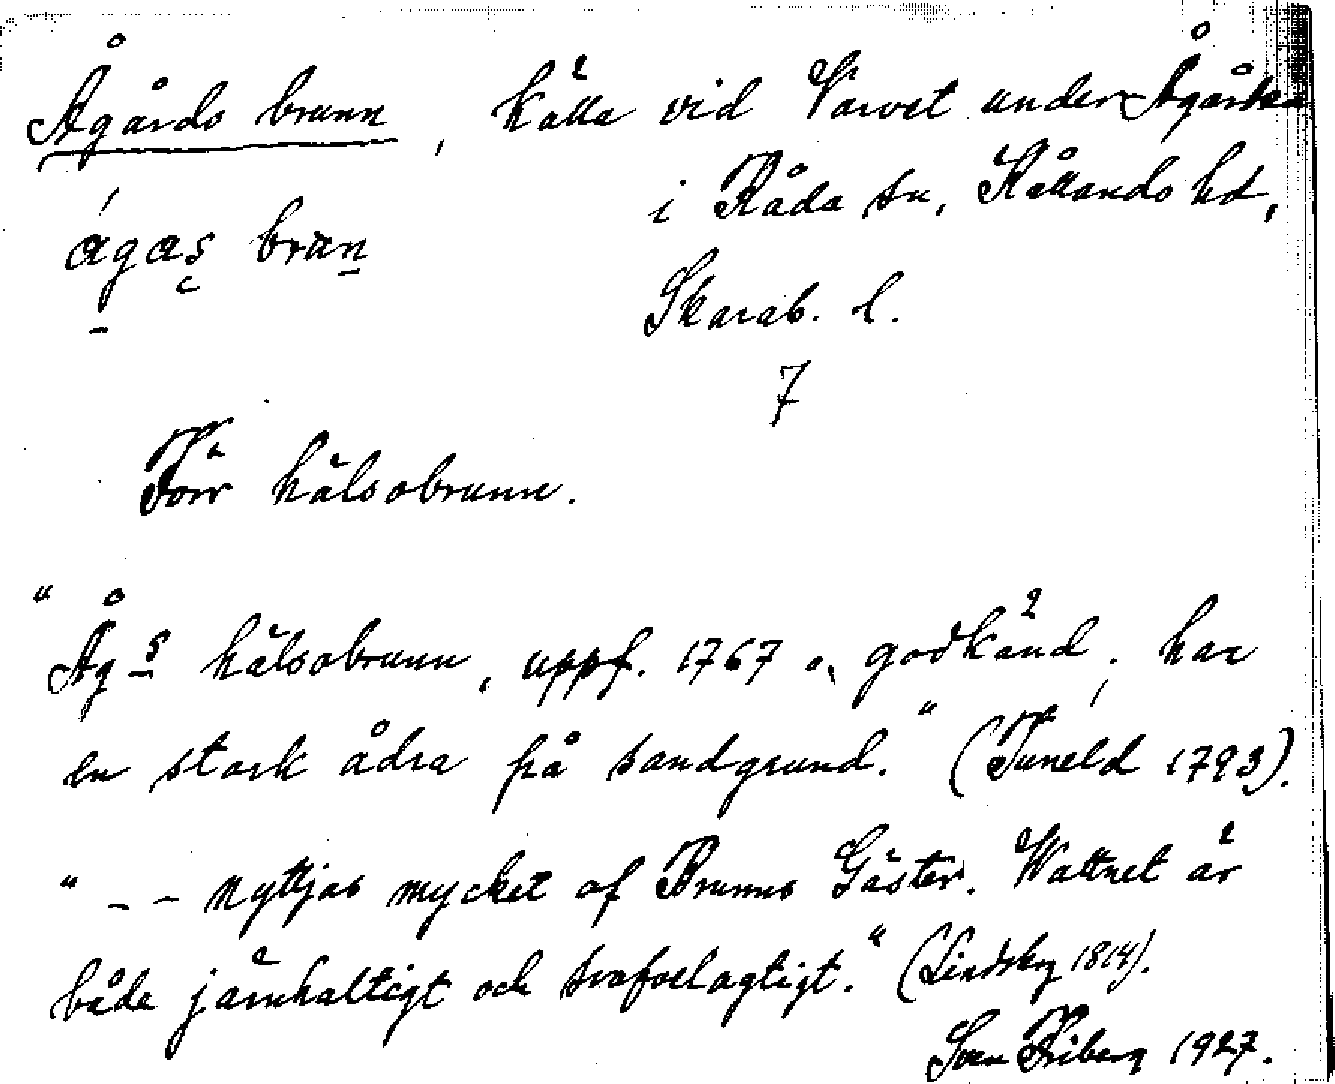 Ågårds brunn, källa vid Varvet under Ågården
i Råda sn, Kållands hd,
ágas̨ bran
Skarab. l.
7
Förr hälsobrunn.
"Åg-s hälsobrunn, uppf. 1767 o. godkänd, har
en stark ådra på sandgrund." (Tuneld 1793).
"-- nyttjas mycket af Brunns Gäster. Wattnet är
både järnhaltigt och svafvelagtigt." (Lindskog 1814).
Sven Friberg 1927.